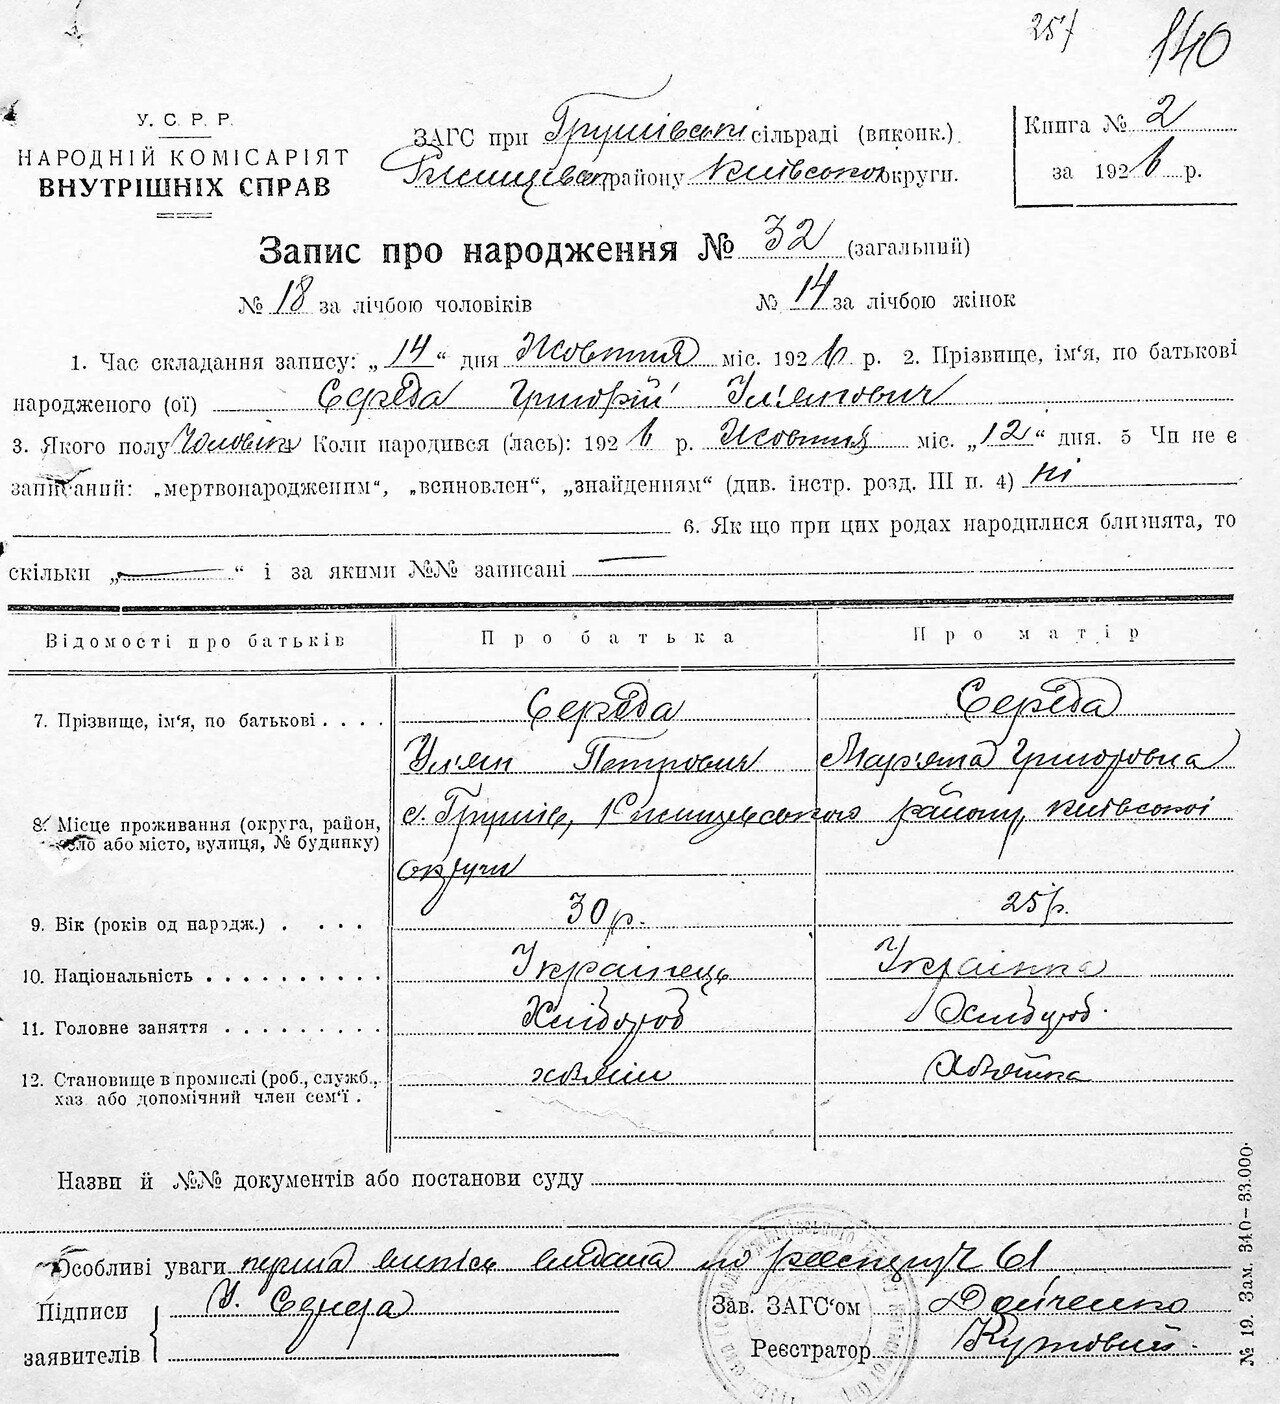 257
140
У. С. Р. Р.
НАРОДНІЙ КОМІСАРІЯТ
ВНУТРІШНІХ СПРАВ
ЗАГС при Грушівські сільраді (виконк.)
району Київської округи.
Книга № 2
за 1926 р.
Запис про народження № 32 (загальний)
№ 18 за лічбою чоловіків № 14 за лічбою жінок
1. Час складання запису: „14“ дня Жовтня міс. 1926 р. 2. Прізвище, ім‘я, по батькові
народженого (ої) Середа Григорій Ул‘янович
3. Якого полу Чоловік Коли народився (лась): 1926 р. Жовтня міс. „12“ дня. 5 Чи не є
записаний: „мертвонародженим“, „всиновлен“, „знайденням“ (див. інстр. розд. III п. 4) ні
6. Як що при цих родах народилися близнята, то
скільки „—“ і за якими №№ записані —
Відомості про батьків Про батька Про матір
7. Прізвище, ім‘я, по батькові . . . . Середа Середа
Ул‘ян Петрович Мар‘яна Григоровна
8. Місце проживання (округа, район, село або місто, вулиця, № будинку) с. Грушів, району, Київської
округи
9. Вік (років од народж.) . . . . . 30 р. 25 р.
10. Національність . . . . . . . . . . Українець Українка
11. Головне заняття . . . . . . . . . Хлібороб Хлібороб.
12. Становище в промислі (роб., служб., хаз або допомічний член сем‘ї . хазяїн Хазяйка
Назви й №№ документів або постанови суду
Особливі уваги перша випись видана по реєстру № 61
Підписи
заявителів У. Середа
Зав. ЗАГС‘ом Дойченко
Реєстратор Кутовий.
№ 19. Зам. 340–33.000.